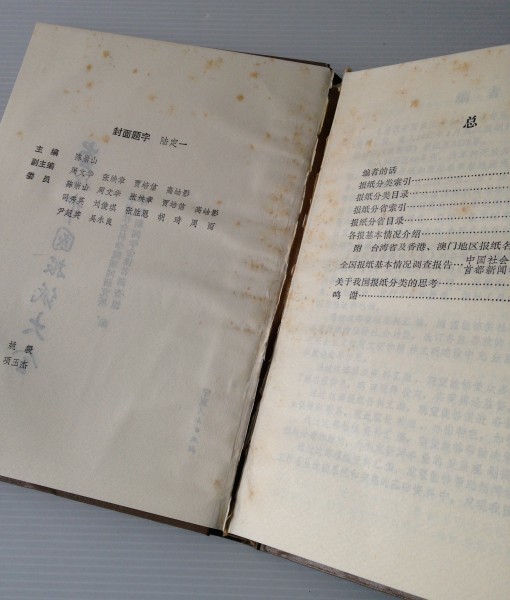 封面题字 陆定一
主编 陈崇山
副主编 周文华 张焕章 贾培信 高岫影
委员 陈崇山 周文华 张焕章 贾培信 高岫影
刘俊琪 张胜恩 胡琦 周酉
尹延英 吴永良
姚毅
项玉杰
总
编者的话
报纸分类索引
报纸分类目录
报纸分省索引
报纸分省目录
各报基本情况介绍
附 台湾省及香港、澳门地区报纸名
全国报纸基本情况调查报告…中国社会
首都新闻
关于我国报纸分类的思考
鸣谢